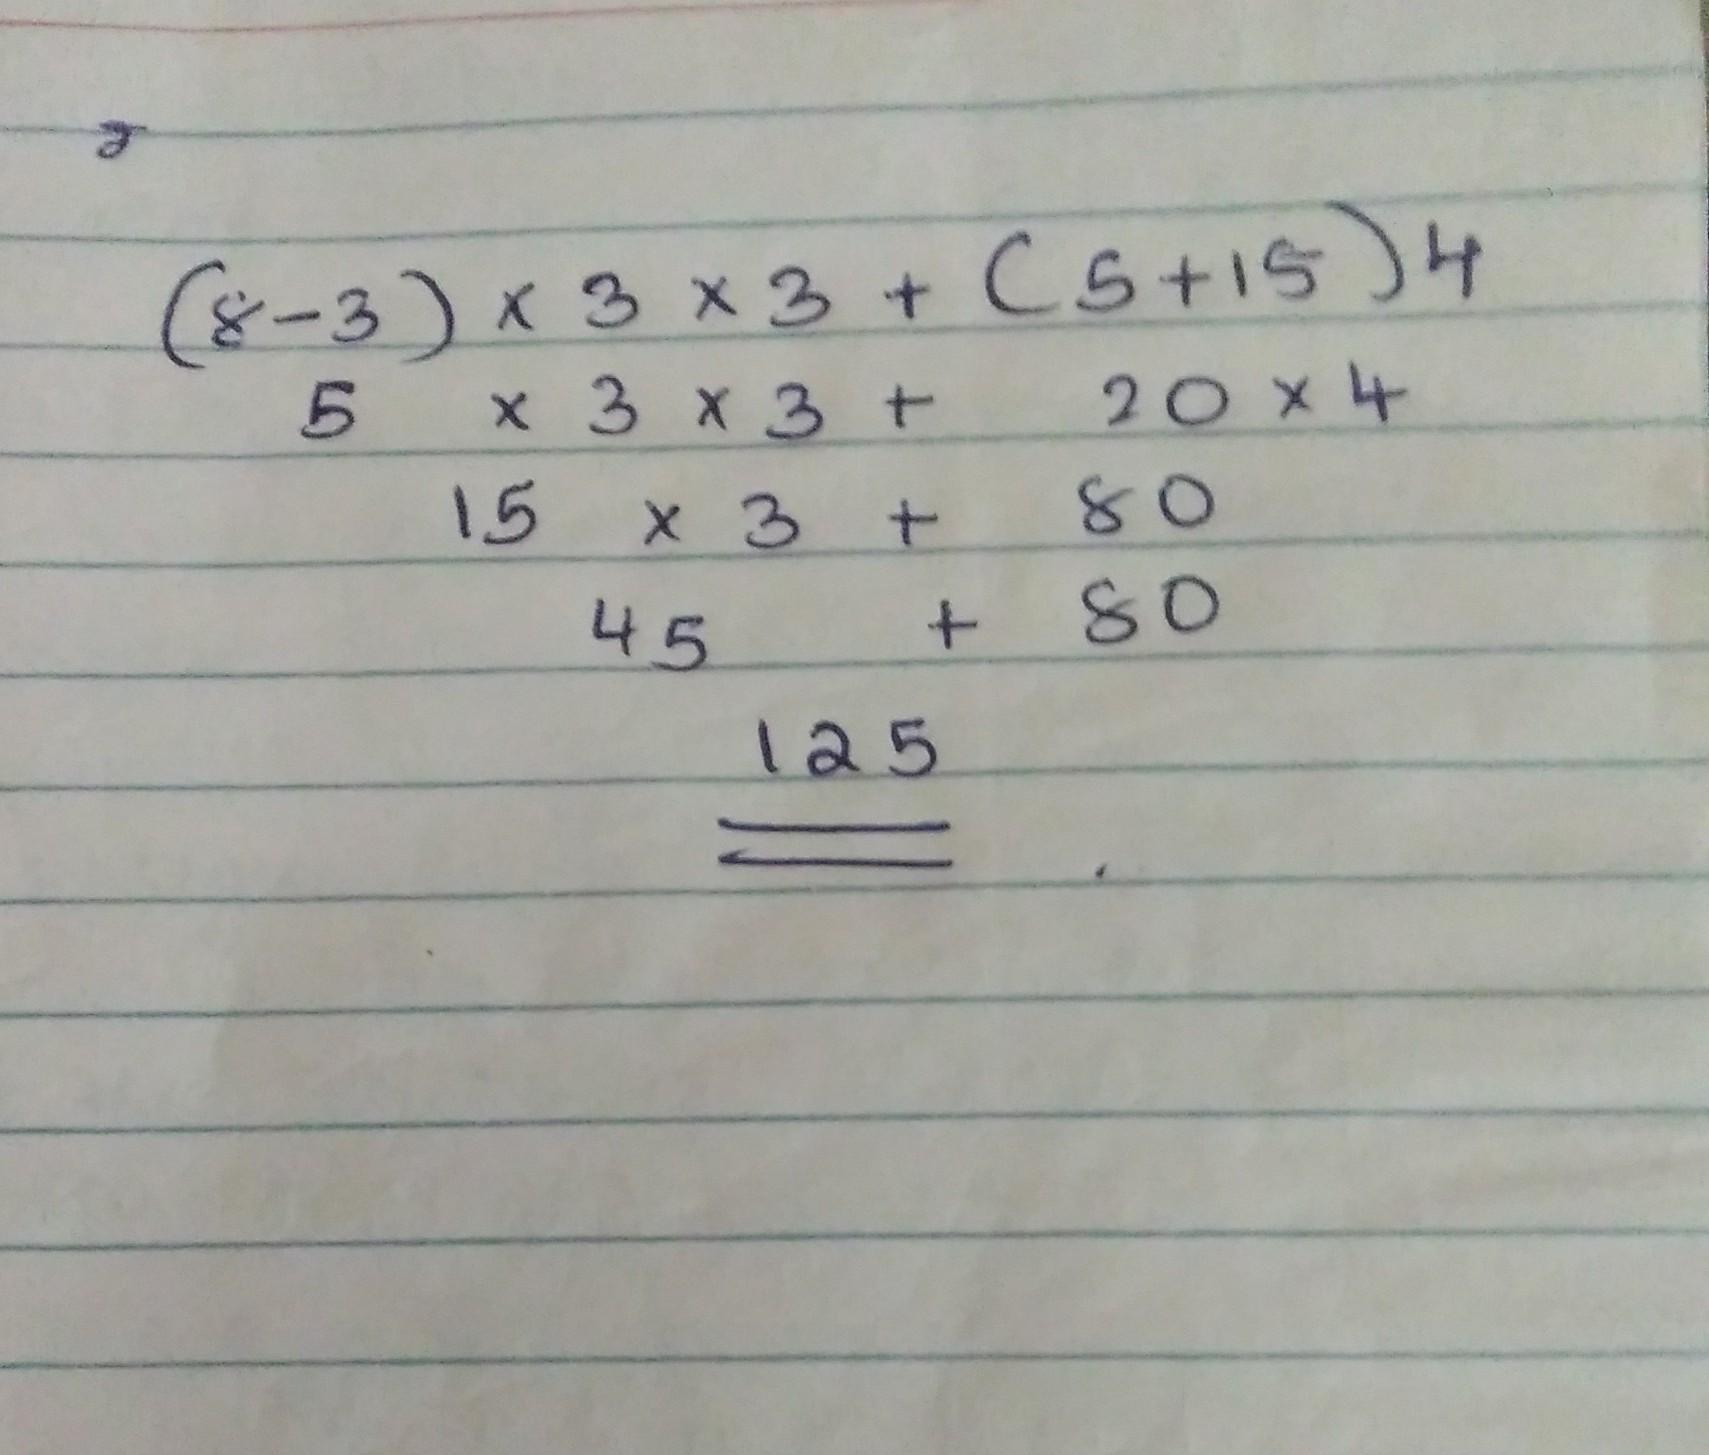 2
(8-3) × 3 × 3 + (5+15)4
5 × 3 × 3 + 20 × 4
15 × 3 + 80
45 + 80
125